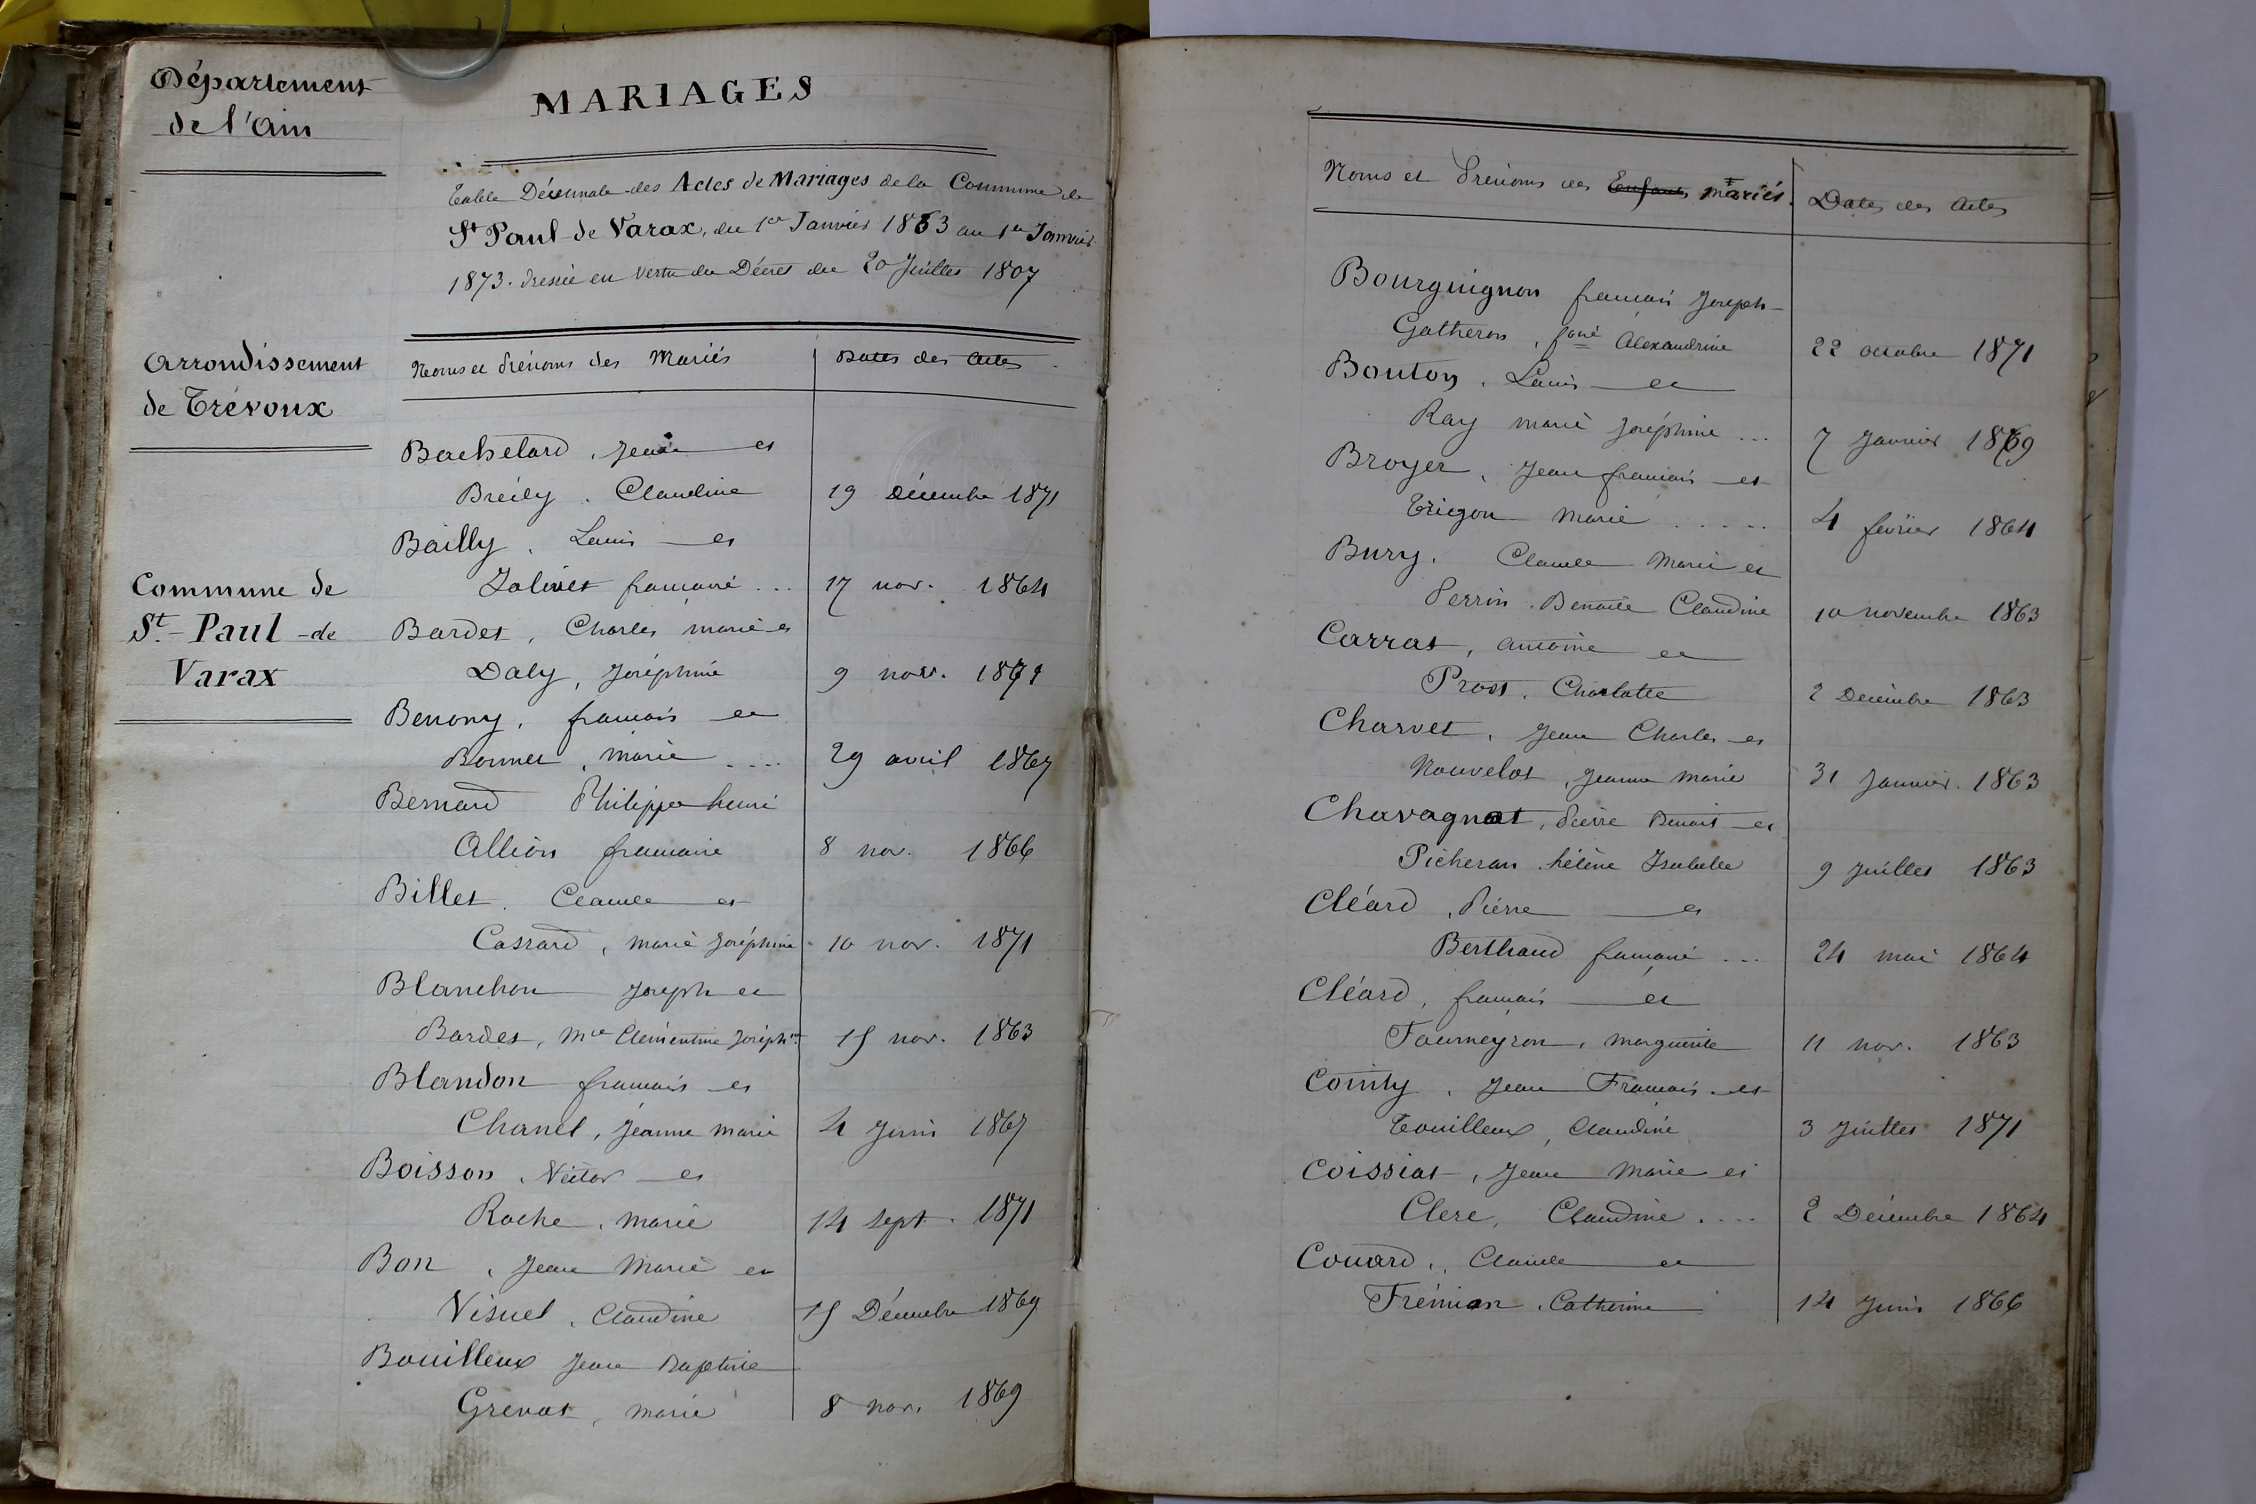 Département
de l'Ain
Arrondissement
de Trévoux
Commune de
St.-Paul-de
Varax
MARIAGES
Table Décennale des Actes de Mariages de la Commune de
St Paul-de Varax, du 1er Janvier 1863 au 1er Janvier
1873. dressée en vertu du Décret du 20 Juillet 1807
Noms et Prénoms des Mariés
Dates des Actes
Bachelard, Jean et
Breily. Claudine 19 décembre 1871
Bailly, Louis et
Jolivet françoise ... 17 nov. 1864
Bardet, Charles marie et
Daly, Joséphine 9 nov. 1871
Benony, françois et
Bonnet, marie .... 29 avril 1867
Bernard Philippe henri
Allion françoise 8 nov. 1866
Billet. Claude et
Cassard, marie Joséphine 10 nov. 1871
Blanchon Joseph et
Bardet, Mie Clémentine Joséphne 15 nov. 1863
Blandon françois et
Chanel, Jeanne marie 4 Juin 1867
Boisson, et
Roche, marie 14 sept. 1871
Bon, Jean Marie et
Visuel, Claudine 15 Décembre 1869
Bouilleux Jean Baptiste
Grevat, marie 8 nov. 1869
Noms et Prénoms des Enfants mariés.
Dates des Actes
Bourguignon françois Joseph
Gatheron, fçoise Alexandrine 22 octobre 1871
Bouton, Louis et
Ray marie Joséphine ... 7 Janvier 1869
Broyer, Jean françois et
Trigon marie ..... 4 février 1864
Bury. Claude Marie et
Perrin. Benoite Claudine 10 novembre 1863
Carrat, antoine et
Prost. Charlotte 2 Décembre 1863
Charvet, Jean Charles et
Nouvelot, Jeanne Marie 31 Janvier. 1863
Chavagnat, Pierre Benoit et
Picheran. hélène Isabelle 9 Juillet 1863
Cléard, Pierre et
Berthaud françoise ... 24 mai 1864
Cléard, françois et
Fourneyron, marguerite 11 nov. 1863
Cointy, Jean François et
Touilleux, Claudine 3 Juillet 1871
Coissiat, Jean Marie et
Clerc, Claudine .... 2 Décembre 1864
Couard, Claude et
Frémion, Catherine 14 Juin 1866